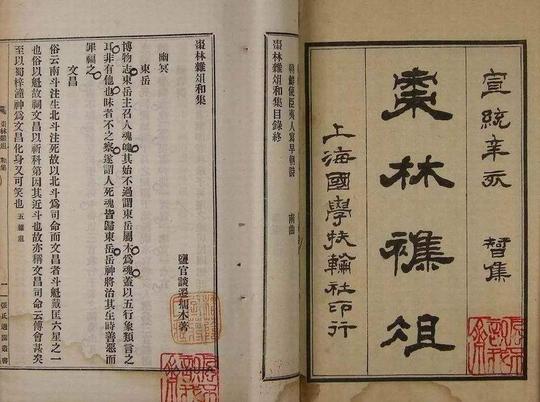 宣統辛亥 智集
棗林襍俎
上海國學扶輪社印行
南曲
棗林雜俎和集目錄終
棗林雜俎和集
鹽官談遷孺木著
幽冥
東岳
博物志東岳主召人魂魄其始不過謂東岳屬木爲魂蓋以五行象類言之
耳非有他也昧者不之察遂謂人死魂皆歸東岳岳神將治其生時善惡而
罪福之
文昌
俗云南斗注生北斗注死故以北斗爲司命而文昌者斗魁戴匡六星之一
也俗以魁故祠文昌以祈科第因其近斗也故亦稱文昌司命云傅會甚矣
至以蜀梓潼神爲文昌化身又可笑也 五雜俎
棗林雜俎 和集 一 張氏適園叢書